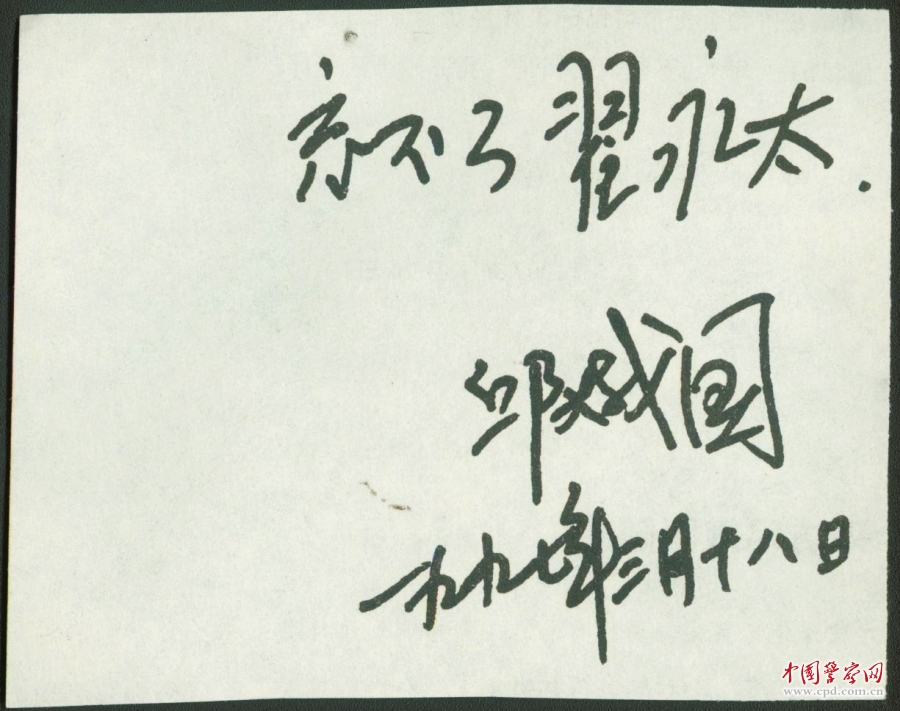 忘不了翟永太.
邱娥国
一九九七年三月十八日
中国警察网
www.cpd.com.cn